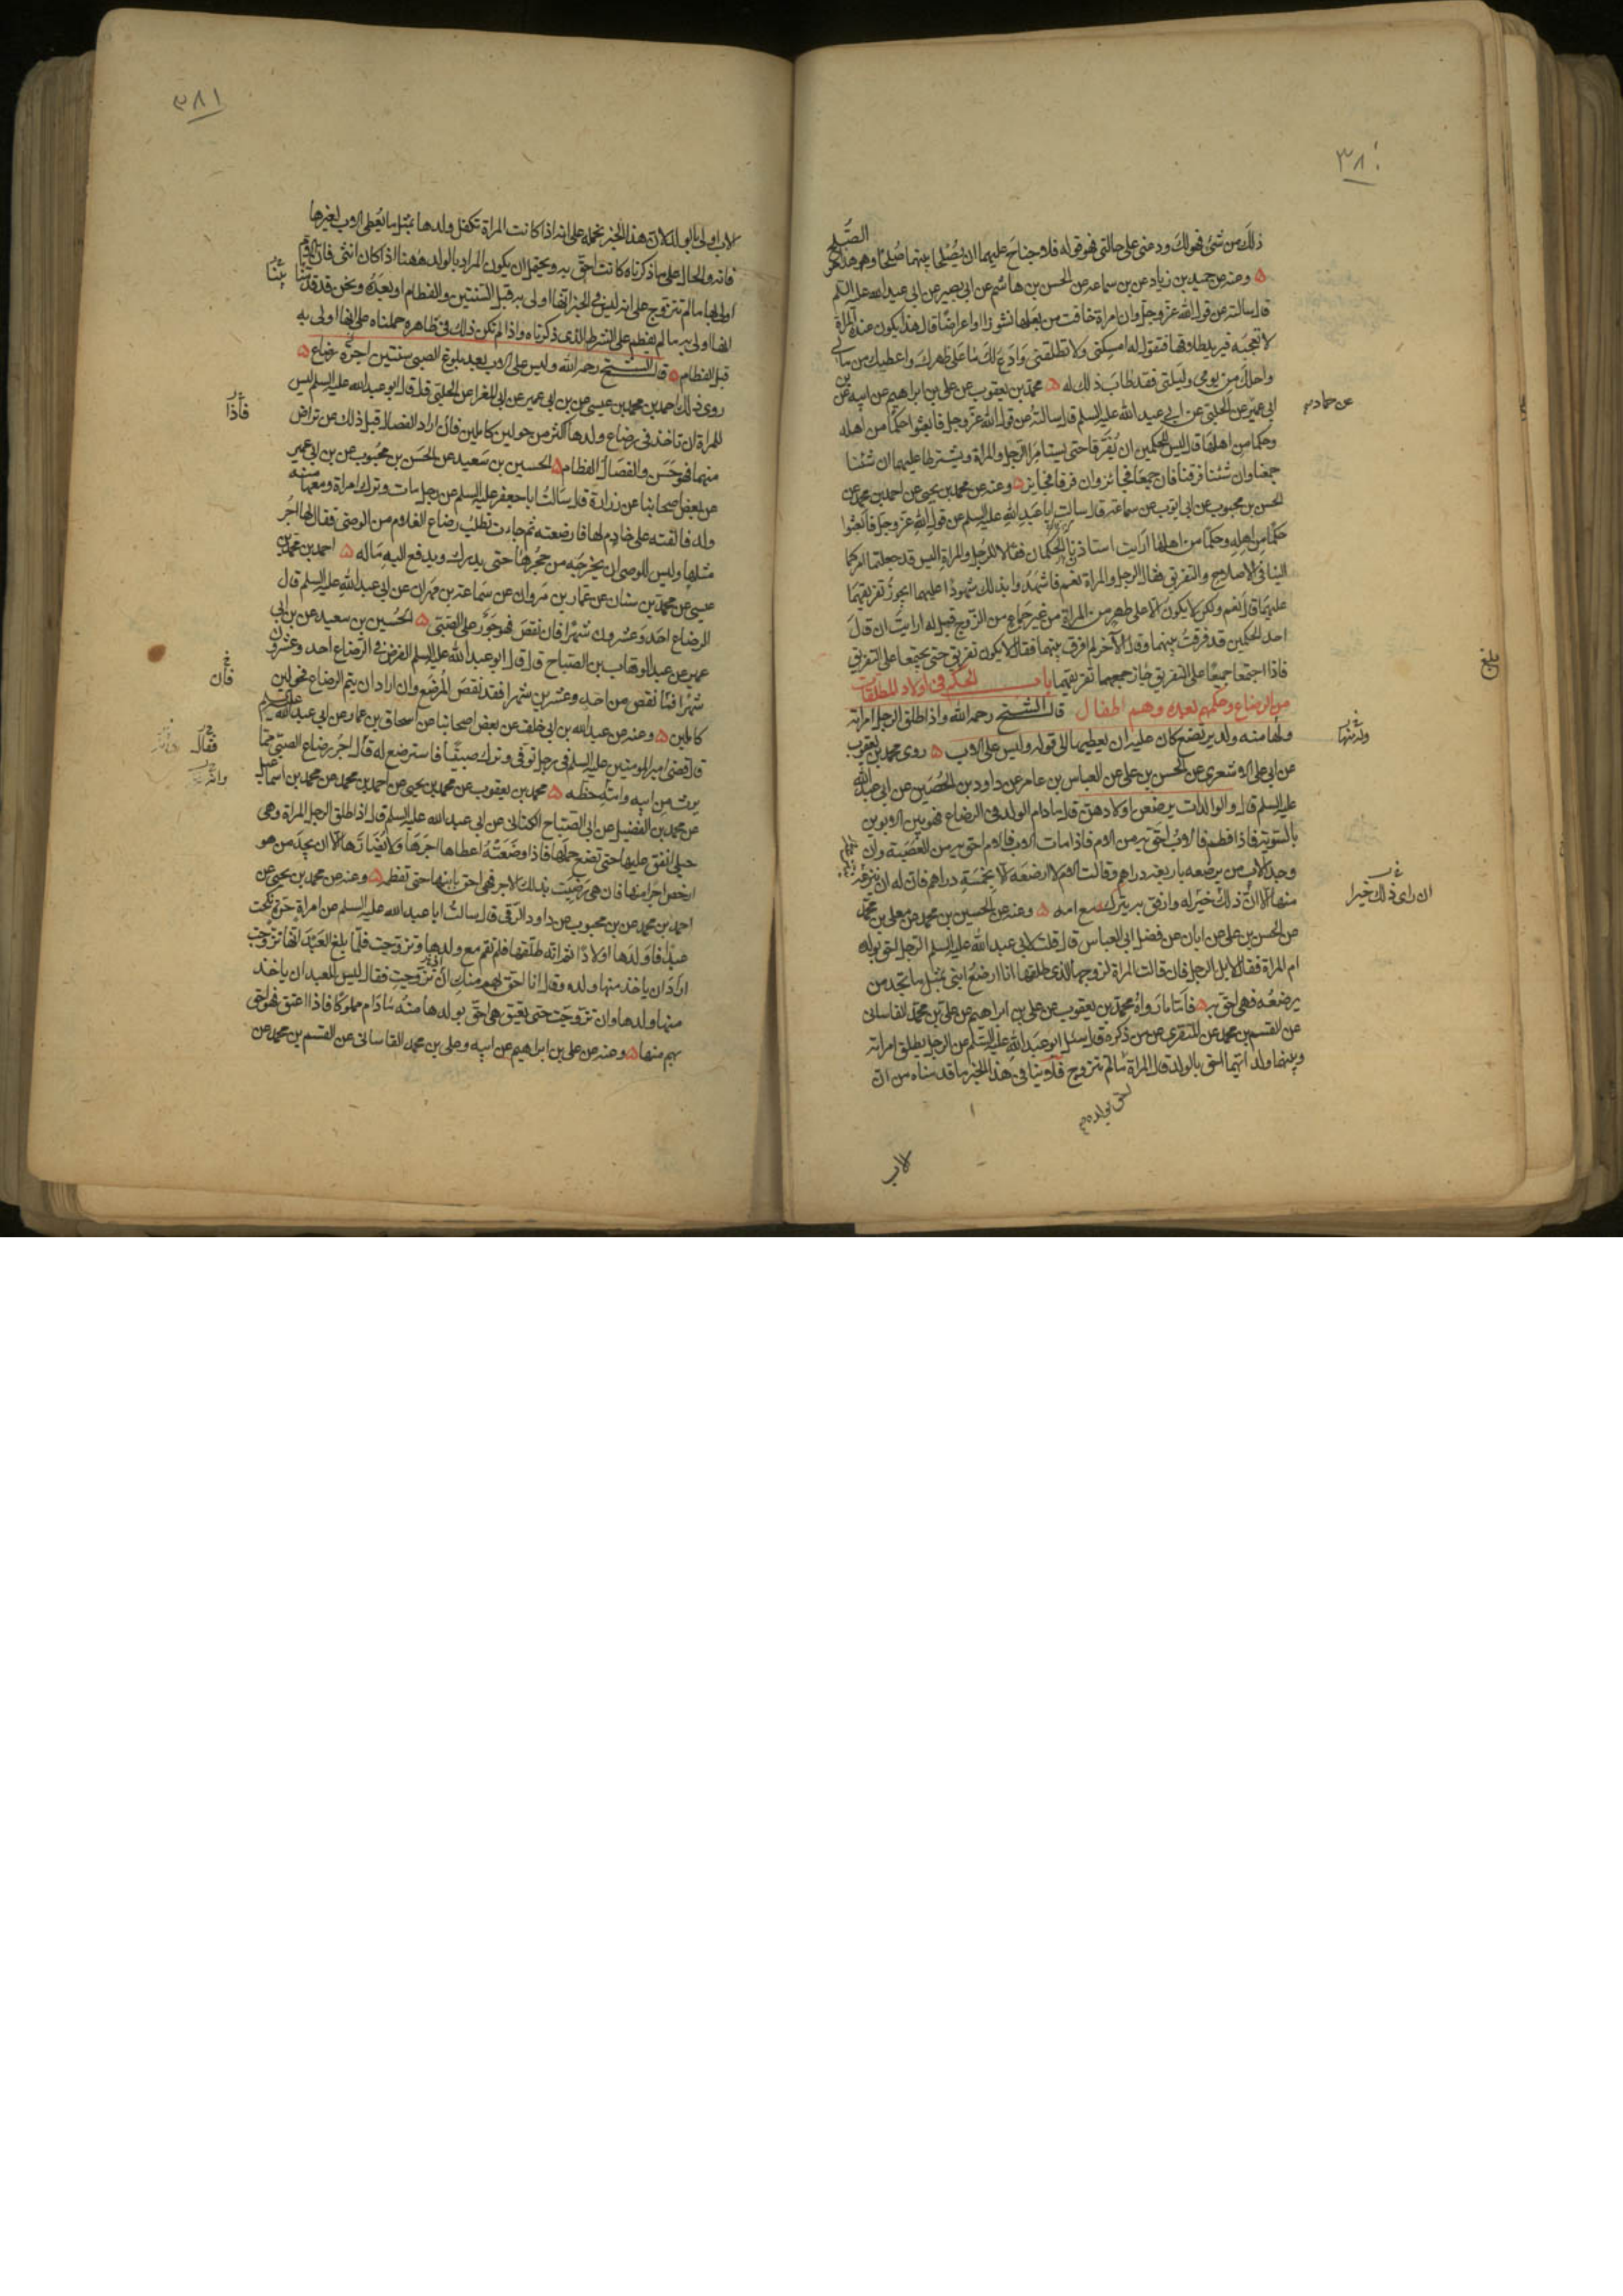 ٣٨٠
ذلك من شئ فهو لك ودعنى على حالتى فهو قوله فلا جناح عليهما ان يصلحا بينهما صلحا وهو هذا الصلح
وعنه عن حميد بن زياد عن بن سماعه عن الحسن بن هاشم عن ابى بصير عن ابى عبد الله عليه السلم
قال سالته عن قول الله عز وجل وان امراة خافت من بعلها نشوزا او اعراضا قال هذا يكون عنده المراة
لا تعجبه فيريد طلاقها فتقول له امسكنى ولا تطلقنى وادع لك ما على ظهرك واعطيك من مالى
واحلك من يومى وليلتى فقد طاب ذلك له محمد بن يعقوب عن على بن ابراهيم عن ابيه عن بن
ابى عمير عن الحلبى عن ابى عبد الله عليه السلم قال سالته عن قول الله عز وجل فابعثوا حكما من اهله
عن حماد
وحكما من اهلها قال ليس للحكمين ان يفرقا حتى يستامرا الرجل والمراة ويشترطا عليهما ان شئنا
جمعنا وان شئنا فرقنا فان جمعا فجائز وان فرقا فجايز وعنه عن محمد بن يحيى عن احمد بن محمد عن
الحسن بن محبوب عن ابى ايوب عن سماعة قال سالت ابا عبد الله عليه السلم عن قول الله عز وجل فابعثوا
حكما من اهله وحكما من اهلها ارايت استاذن الحكمان فقالا للرجل والمراة اليس قد جعلتما امركما
الينا فى الاصلاح والتفريق فقال الرجل والمراة نعم فاشهدوا بذلك شهودا عليهما ايجوز تفريقهما
عليهما قال نعم ولكن لا يكون الا على طهر من المراة من غير جماع من الزوج قيل له ارايت ان قال
احد الحكمين قد فرقت بينهما وقال الآخر لم افرق بينهما فقال لا يكون تفريق حتى يجتمعا على التفريق
بلغ
فاذا اجتمعا جميعا على التفريق جاز جميعهما تفريقهما باب الحكم فى اولاد المطلقات
من الرضاع وحكمهم بعده وهم اطفال قال الشيخ رحمه الله واذا طلق الرجل امراته
ولها منه ولد يرتضع كان عليه ان يعطيها الى قوله وليس على الاب روى محمد بن يعقوب
عن ابى على الاشعرى عن الحسن بن على عن العباس بن عامر عن داود بن الحصين عن ابى عبد الله
عليه السلم قال والوالدات يرضعن اولادهن قال مادام الولد فى الرضاع فهو بين الابوين
بالسوية فاذا فطم فالاب احق به من الام فاذا مات الاب فالام احق به من العصبة وان
وجد الاب من يرضعه باربعة دراهم وقالت الام لا ارضعه الا بخمسة دراهم فان له ان ينزعه
ان راى ذلك خيرا
منها الا ان ذلك خير له وارفق به يترك مع امه وعنه عن الحسين بن محمد عن معلى بن محمد
عن الحسن بن على عن ابان عن فضل ابى العباس قال قلت لابى عبد الله عليه السلم الرجل احق بولده
ام المراة فقال لا بل الرجل فان قالت المراة لزوجها الذى طلقها انا ارضع ابنى بمثل ما تجد من
يرضعه فهى احق به فاما ما رواه محمد بن يعقوب عن على بن ابراهيم عن على بن محمد القاسانى
عن القسم بن محمد عن المنقرى عن من ذكره قال سئل ابو عبد الله عليه السلم عن الرجل يطلق امراته
وبينهما ولد ايهما احق بالولد قال المراة ما لم تتزوج فلا ينافى هذا الخبر ما قدمناه من ان
لاب
٣٨١
لاب اولى بالولد لان هذا الخبر نحمله على انه اذا كانت المراة تكفل ولدها بمثل ما يعطى الاب لغيرها
فانه والحال على ما ذكرناه كانت احق به ويحتمل ان يكون المراد بالولد ههنا اذا كان انثى فان الام
اولى بها ما لم تتزوج على انه ليس فى الخبر انها اولى به قبل السنتين والفطام او بعده ونحن قد قدمنا
انها اولى به ما لم يفطم على الشرط الذى ذكرناه واذا لم تكن ذلك فى ظاهره حملناه على انها اولى به
قبل الفطام قال الشيخ رحمه الله وليس على الاب بعد بلوغ الصبى سنتين اجرة رضاع
روى ذلك احمد بن محمد بن عيسى عن بن ابى عمير عن ابى المغرا عن الحلبى قال قال ابو عبد الله عليه السلم ليس
للمراة ان تاخذ فى رضاع ولدها اكثر من حولين كاملين فان اراد الفصال قبل ذلك عن تراض
فاذا
منهما فهو حسن والفصال الفطام الحسين بن سعيد عن الحسن بن محبوب عن بن ابى عمير
عن بعض اصحابنا عن زرارة قال سالت ابا جعفر عليه السلم عن رجل مات وترك امراة ومعها منه
ولد فالقته على خادم لها فارضعته ثم جاءت تطلب رضاع الغلام من الوصى فقال لها اجر
مثلها وليس للوصى ان يخرجه من حجرها حتى يدرك ويدفع اليه ماله احمد بن محمد بن
عيسى عن محمد بن سنان عن عمار بن مروان عن سماعة بن مهران عن ابى عبد الله عليه السلم قال
الرضاع احد وعشرون شهرا فان نقص فهو جور على الصبى الحسين بن سعيد عن بن ابى
عمير عن عبد الوهاب بن الصباح قال قال ابو عبد الله عليه السلم الفرض فى الرضاع احد وعشرون
شهرا فما نقص من احد وعشرين شهرا فقد نقص المرضع وان اراد ان يتم الرضاع فحولين
فان
كاملين وعنه عن عبد الله بن ابى خلف عن بعض اصحابنا عن اسحاق بن عمار عن ابى عبد الله عليه السلم
قال قضى امير المومنين عليه السلم فى رجل توفى وترك صبيا فاسترضع له قال اجر رضاع الصبى مما
فقال
يرث من ابيه وامه حظه محمد بن يعقوب عن محمد بن يحيى عن احمد بن محمد عن محمد بن اسماعيل
عن محمد بن الفضيل عن ابى الصباح الكنانى عن ابى عبد الله عليه السلم قال اذا طلق الرجل المراة وهى
حبلى انفق عليها حتى تضع حملها فاذا وضعته اعطاها اجرها ولا يضارها الا ان يجد من هو
ارخص اجرا منها فان هى رضيت بذلك الاجر فهى احق بابنها حتى تفطمه وعنه عن محمد بن يحيى عن
احمد بن محمد عن بن محبوب عن داود الرقى قال سالت ابا عبد الله عليه السلم عن امراة حرة نكحت
عبدا فاولدها اولادا ثم انه طلقها فلم تقم مع ولدها وتزوجت فلما بلغ العبد انها تزوجت
اراد ان ياخذ منها ولده وقال انا احق بهم منك ان تزوجت فقال ليس للعبد ان ياخذ
منها ولدها وان تزوجت حتى يعتق هى احق بولدها منه مادام مملوكا فاذا اعتق فهو احق
بهم منها وعنه عن على بن ابراهيم عن ابيه وعلى بن محمد القاسانى عن القسم بن محمد عن